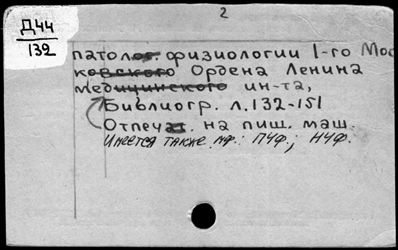 2
Д44
132
патолог. физиологии 1-го Мос
ковского Ордена Ленина
медицинского ин-та,
Библиогр. л.132-151
Отпечат. на пиш. маш.
Имеется также мф.: ПЧФ.; НЧФ.